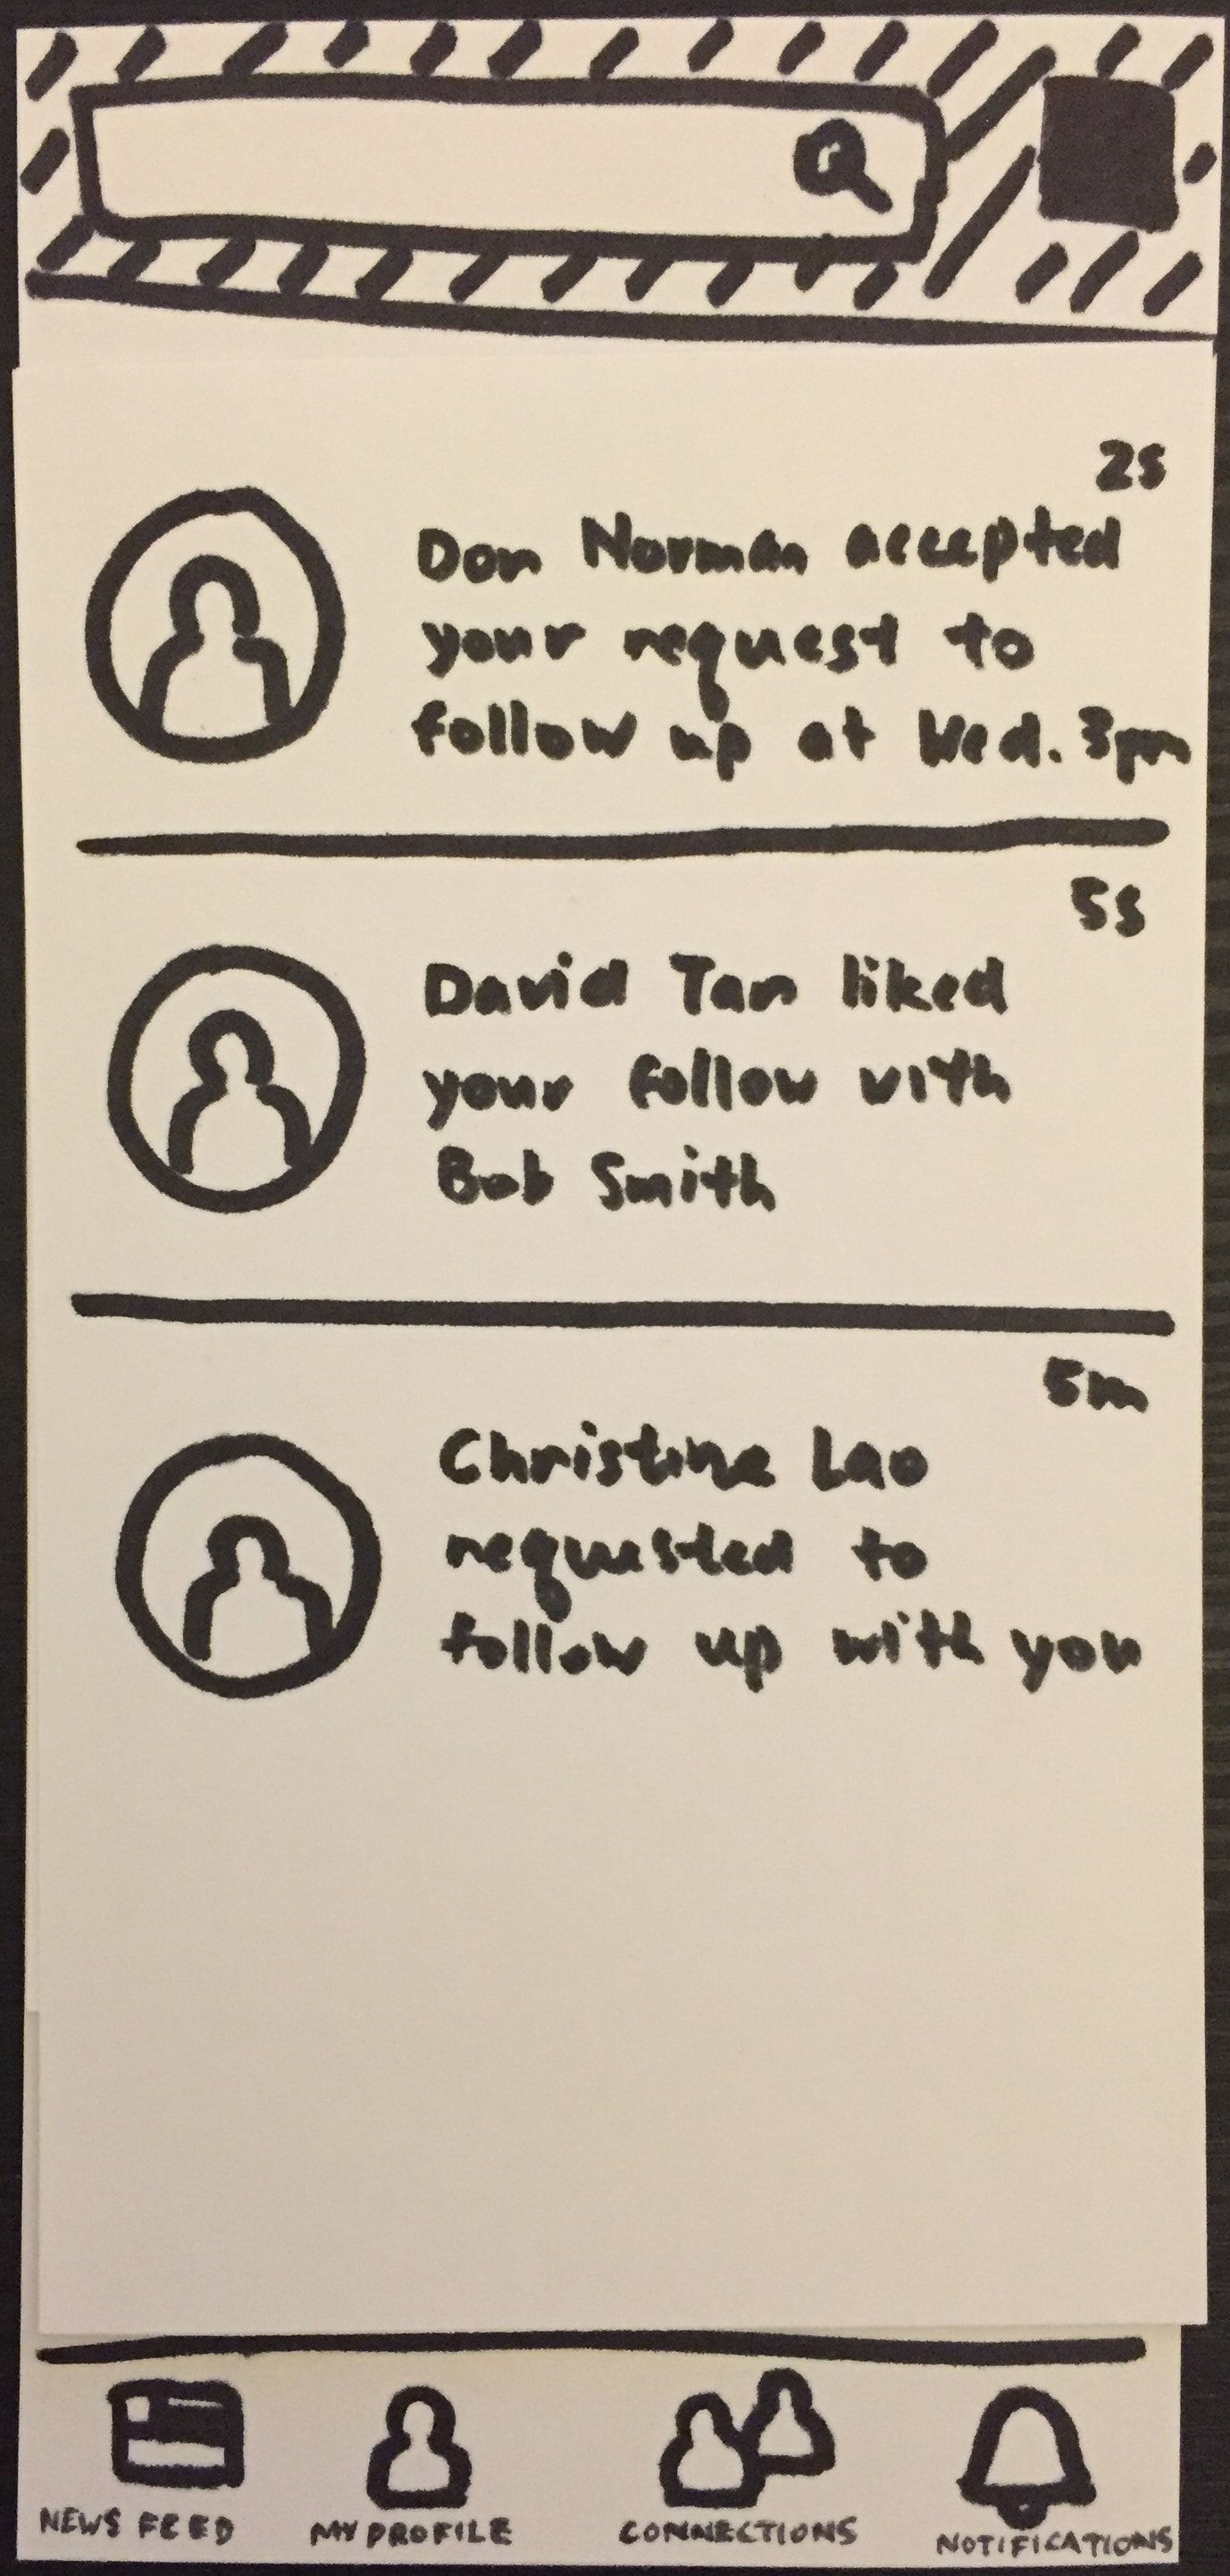 2s
Don Norman accepted
your request to
follow up at Wed. 3pm
5s
David Tan liked
your follow with
Bob Smith
5m
Christine Lao
requested to
follow up with you
NEWS FEED MY PROFILE CONNECTIONS NOTIFICATIONS